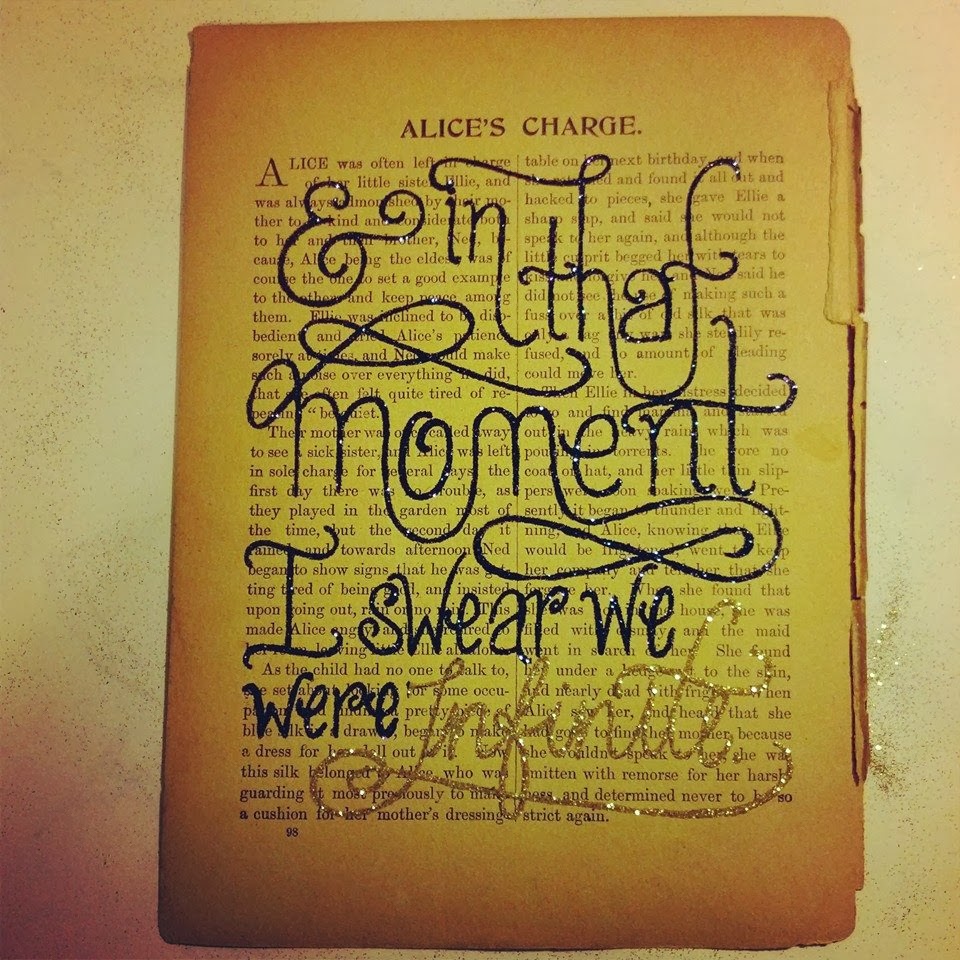 ALICE'S CHARGE.
& in that
moment
I swear we
were infinite
ALICE was often left in charge
of her little sister Ellie, and
was always admonished by their mo-
ther to be kind and considerate both
to her and their brother, Ned, be-
cause, Alice being the eldest, was of
course the one to set a good example
to the others and keep peace among
them. Ellie was inclined to be diso-
bedient and tried Alice's patience
sorely at times, and Ned would make
such a noise over everything he did,
that she often felt quite tired of re-
peating "be quiet."
Their mother was once called away
to see a sick sister, and Alice was left
in sole charge for several days, the
first day there was no trouble, as
they played in the garden most of
the time, but the second day it
rained and towards afternoon Ned
began to show signs that he was get-
ting tired of being good, and insisted
upon going out, rain or no rain. This
made Alice angry and
leaving Ellie
As the child had no one to talk to,
she set about looking for some occu-
finding pretty piece of
blue silk in a drawer, began to make
a dress for her doll out
this silk belonged to Alice, who was
guarding it most preciously to make
a cushion for her mother's dressing-
98
table on her next birthday, and when
she returned and found it all cut and
hacked to pieces, she gave Ellie a
sharp slap, and said she would not
speak to her again, and although the
little culprit begged her with tears to
kiss and forgive her, said he
did not see the use of making such a
fuss over a bit of old silk that was
way, she steadily re-
fused, and no amount of pleading
could move her.
Then Ellie in her distress decided
to go and find mamma and
out in the heavy rain which was
pouring torrents. She wore no
coat or hat, and her little thin slip-
pers were soon soaking wet. Pre-
sently it began to thunder and light-
ning, and Alice, knowing that Ellie
would be frightened, went to keep
her company and tell her that she
forgave her. When she found that
was house, she was
filled with and the maid
went in search of her. She found
her under a hedge, to the skin,
and nearly dead with fright. When
Alice her, and heard that she
had gone to find her mother, because
she wouldn't speak she was
smitten with remorse for her harsh-
ness, and determined never to be so
strict again.